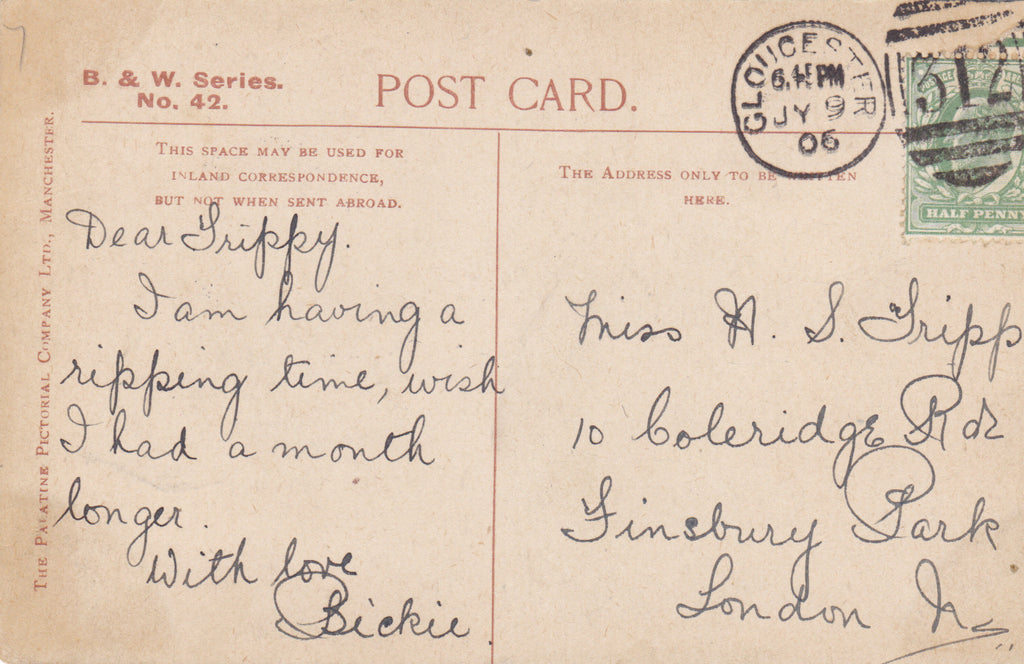 B. & W. Series.
No. 42.
POST CARD.
THE PALATINE PICTORIAL COMPANY LTD., MANCHESTER.
THIS SPACE MAY BE USED FOR
INLAND CORRESPONDENCE,
BUT NOT WHEN SENT ABROAD.
Dear Trippy.
I am having a
ripping time, wish
I had a month
longer.
With love
Bickie
GLOUCESTER
PM
JY 9
06
512
HALF PENNY
THE ADDRESS ONLY TO BE WRITTEN
HERE.
Miss H. S. Tripp
10 Coleridge Rd
Finsbury Park
London N